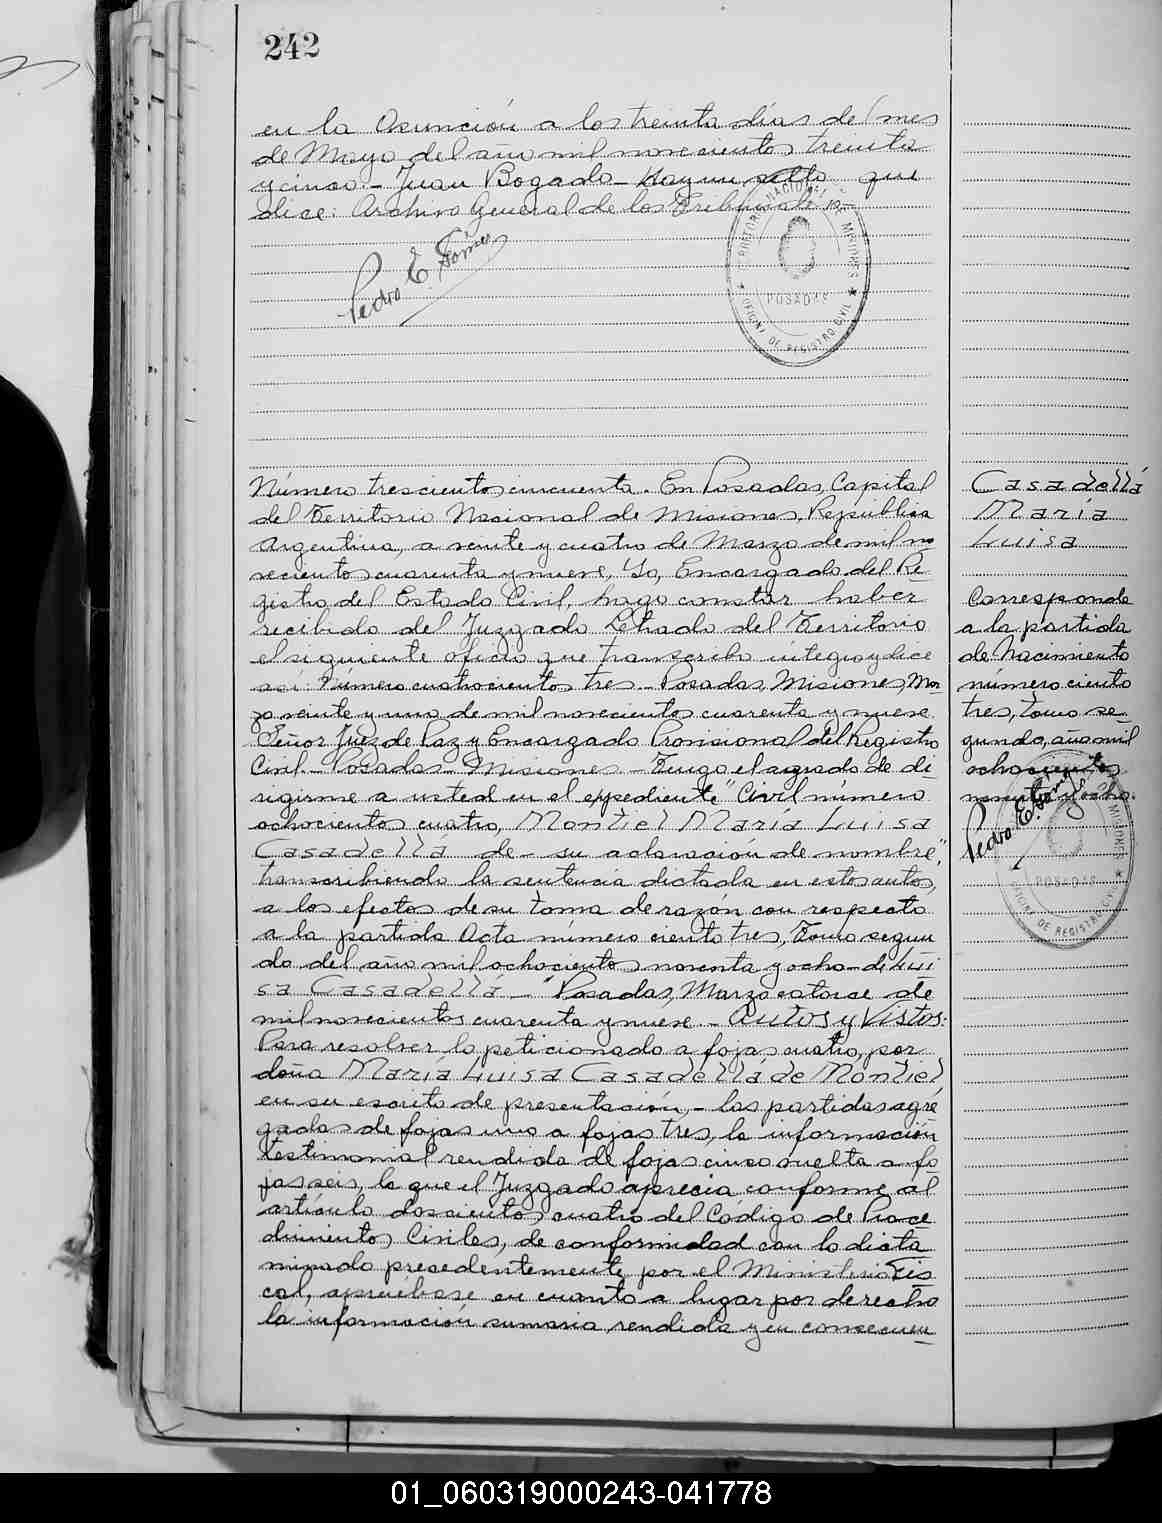 242
en la Asunción a los treinta días del mes
de Mayo del año mil novecientos treinta
y cinco.- Juan Bogado- Hay un sello que
dice: Archivo General de los Tribunales.
Pedro E. Gómez
TERRITORIO NACIONAL DE MISIONES
POSADAS
OFICINA DE REGISTRO CIVIL
Número trescientos cincuenta. En Posadas, Capital
del Territorio Nacional de Misiones, República
Argentina, a veinte y cuatro de Marzo de mil no
vecientos cuarenta y nueve, Yo, Encargado del Re-
gistro del Estado Civil, hago constar haber
recibido del Juzgado Letrado del Territorio
el siguiente oficio que transcribo integro y dice
así: Número cuatrocientos tres.- Posadas, Misiones, Mar-
zo veinte y uno de mil novecientos cuarenta y nueve.
Señor Juez de Paz y Encargado Provisional del Registro
Civil.- Posadas- Misiones.- Tengo el agrado de di-
rigirme a usted en el expediente "Civil número
ochocientos cuatro, Montiel María Luisa
Casadellá de - su aclaración de nombre",
transcribiendo la sentencia dictada en estos autos,
a los efectos de su toma de razón con respecto
a la partida Acta número ciento tres, Tomo segun
do del año mil ochocientos noventa y ocho- de Lui
sa Casadella - "Posadas, Marzo catorce de
mil novecientos cuarenta y nueve.- Autos y Vistos:
Para resolver lo peticionado a fojas cuatro, por
doña María Luisa Casadellá de Montiel
en su escrito de presentación,- las partidas agre-
gadas de fojas uno a fojas tres, la información
testimonial rendida de fojas cinco vuelta a fo
jas seis, lo que el Juzgado aprecia conforme al
artículo doscientos cuatro del Código de Proce
dimientos Civiles, de conformidad con lo dicta
minado precedentemente por el Ministerio Fis
cal, apruébase en cuanto a lugar por derecho
la información sumaria rendida y en consecuen
Casadellá
María
Luisa
Corresponde
a la partida
de Nacimiento
número ciento
tres, tomo se-
gundo, año mil
ochocientos
noventa y ocho.
Pedro E. Gómez
MISIONES
POSADAS
OFICINA DE REGISTRO CIVIL
01_060319000243-041778